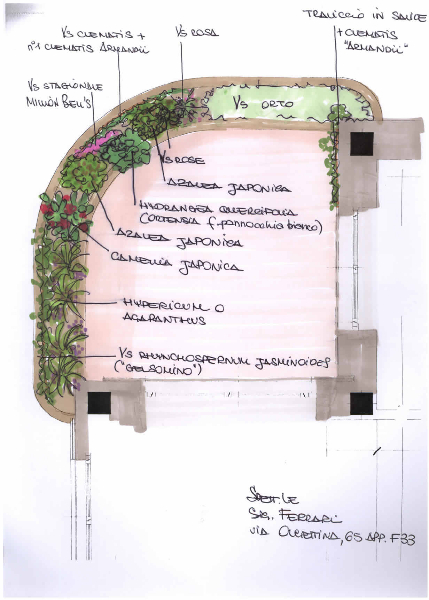 TRALICCIO IN SALICE
+ CLEMATIS
"ARMANDII"
Vs CLEMATIS +
n°1 CLEMATIS ARMANDII
Vs ROSA
Vs STAGIONALE
MILLION BELL'S
Vs ORTO
Vs ROSE
AZALEA JAPONICA
HYDRANGEA QUERCIFOLIA
(ORTENSIA f. pannocchia bianco)
AZALEA JAPONICA
CAMELLIA JAPONICA
HYPERICUM O
AGAPANTHUS
Vs RHYNCHOSPERNUM JASMINOIDES
("GELSOMINO")
Spett.LE
SIG. FERRARI
VIA OLGETTINA, 65 APP. F33